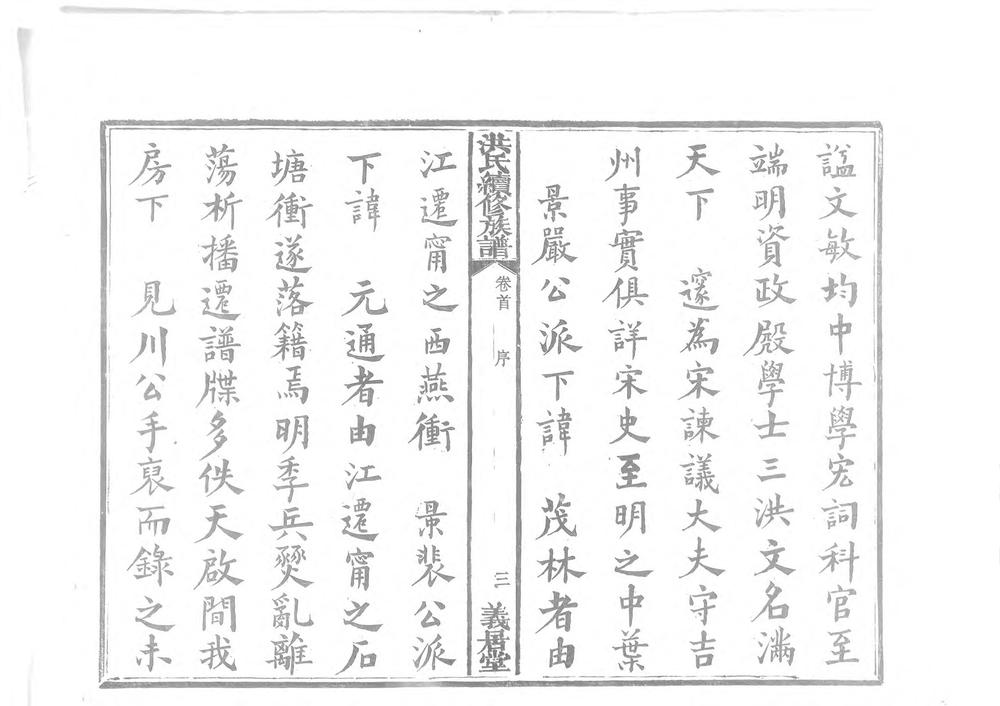 諡文敏均中博學宏詞科官至
端明資政殿學士三洪文名滿
天下　邃為宋諫議大夫守吉
州事實俱詳宋史至明之中葉
景嚴公派下諱　茂林者由
洪氏續修族譜　卷首　序　三　義居堂
江遷甯之西燕衝　景裴公派
下諱　元通者由江遷甯之石
塘衝遂落籍焉明季兵燹亂離
蕩析播遷譜牒多佚天啟間我
房下　見川公手裒而錄之未